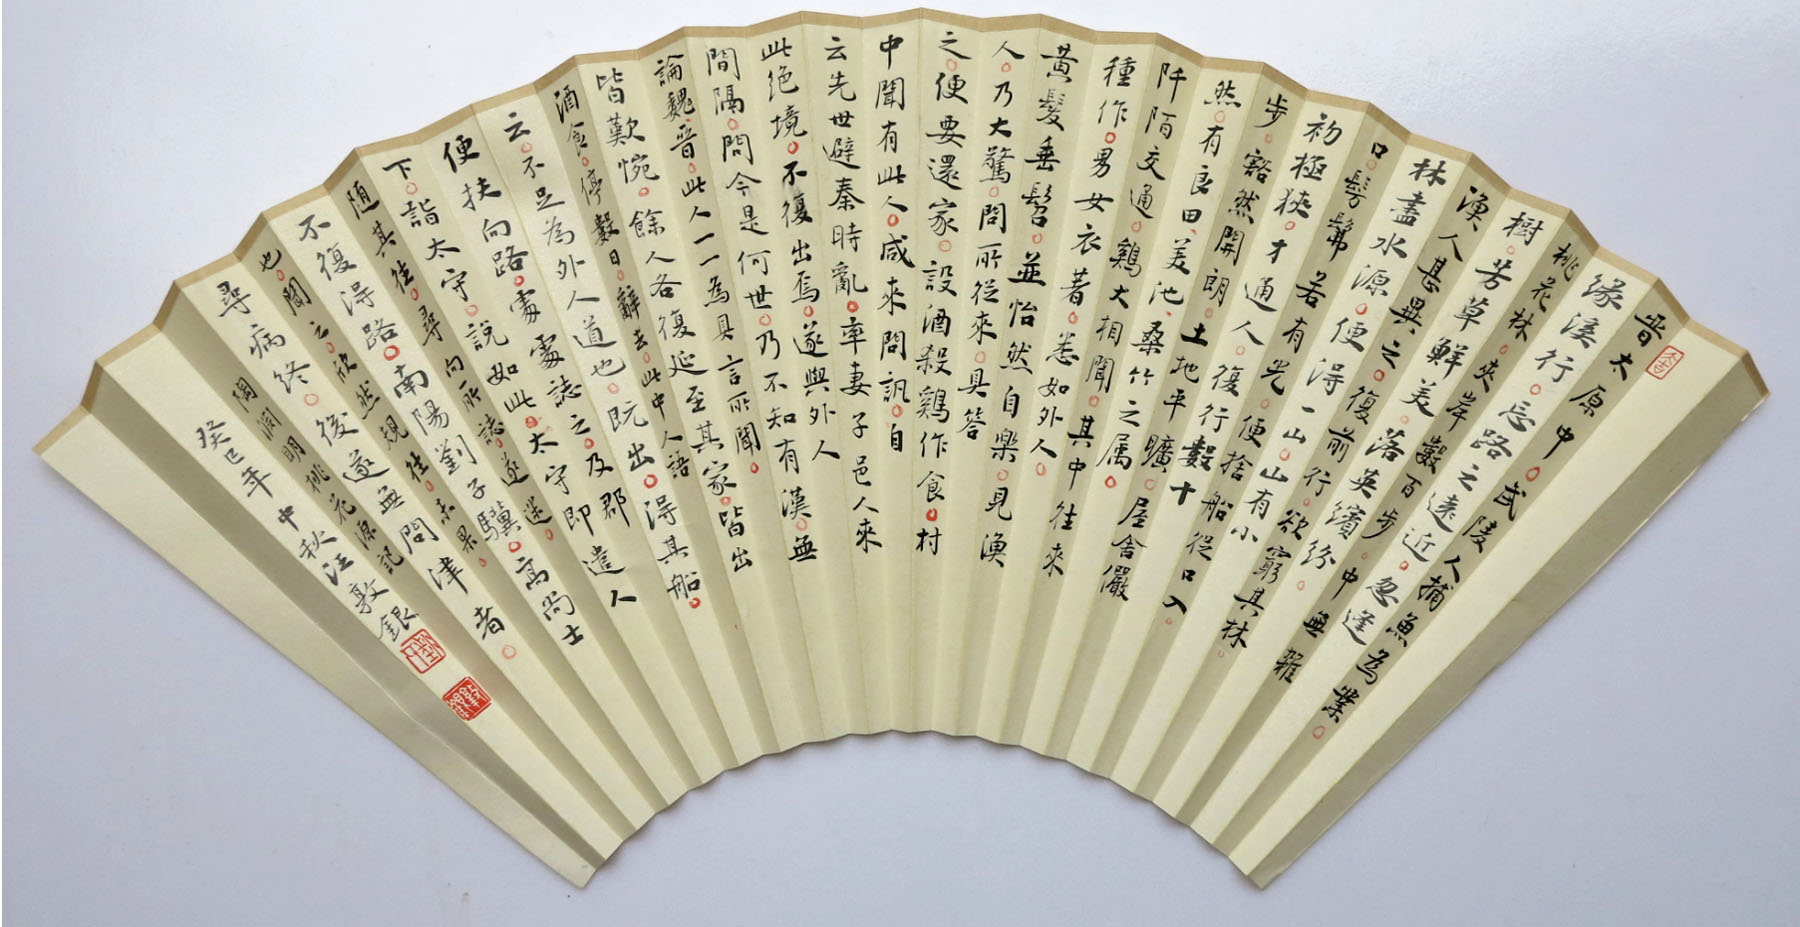 晋太原中。武陵人捕魚為業。
缘溪行。忘路之遠近。忽逢
桃花林。夾岸數百步。中無雜
樹。芳草鮮美。落英繽紛。
漁人甚異之。復前行。欲窮其林。
林盡水源。便得一山。山有小
口。髣髴若有光。便捨船從口入。
初極狹。才通人。復行數十
步。豁然開朗。土地平曠。屋舍儼
然。有良田、美池、桑竹之属。
阡陌交通。鷄犬相聞。其中往来
種作。男女衣著。悉如外人。
黄髮垂髫。並怡然自樂。見漁
人。乃大驚。問所從來。具答
之。便要還家。設酒殺鷄作食。村
中聞有此人。咸來問訊。自
云先世避秦時亂。率妻子邑人來
此绝境。不復出焉。遂與外人
間隔。問今是何世。乃不知有漢。無
論魏、晋。此人一一為具言所聞。
皆歎惋。餘人各復延至其家。皆出
酒食。停數日。辭去。此中人語
云。不足為外人道也。既出。得其船。
便扶向路。處處誌之。及郡
下。詣太守。說如此。太守即遣人
随其往。尋向所誌。遂迷。
不復得路。南陽劉子驥。高尚士
也。聞之。欣然規往。未果。
尋病終。後遂無問津者。
陶渊明桃花源記
癸巳年中秋汪敦銀